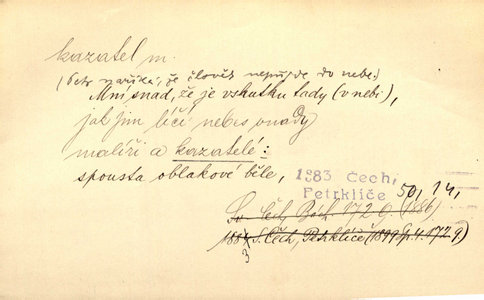 kazatel m.
(Petr naříká, že člověk nepřijde do nebe.)
Mní snad, že je vskutku tady (v nebi),
jak jim líčí nebes vnady
malíři a kazatelé:
spousta oblakové běle,
1883 Čech,
Petrklíče 50, 14,
Sv. Čech, Bách 172 9. (1886)
1884 S. Čech, Petrklíče (1899 Sp. 4. 172 9)
3